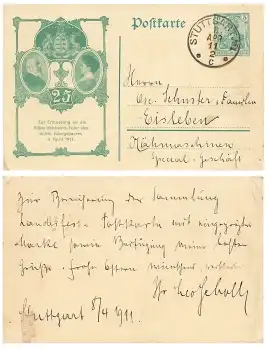 Postkarte
STUTTGART
APR
11
2
C
25
Zur Erinnerung an die
Silber-Hochzeits-Feier des
Württ. Königspaares
8. April 1911.
Herrn
Osc. Schuster,
Eisleben
Nähmaschinen
Special-Geschäft
Zur Bereicherung der Sammlung
Postkarte mit eingeprägter
Marke sowie Beifügung meiner besten
Grüsse. Frohe Ostern wünschend
Ihr Leo
Stuttgart 8/4 1911.